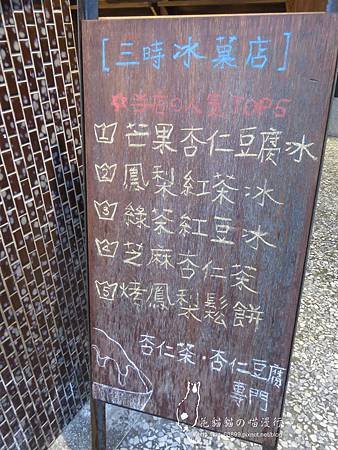 [三時冰菓店]
☆当店の人氣TOP5
1 芒果杏仁豆腐冰
2 鳳梨紅茶冰
3 綠茶紅豆冰
4 芝麻杏仁茶
5 烤鳳梨鬆餅
杏仁茶·杏仁豆腐
專門